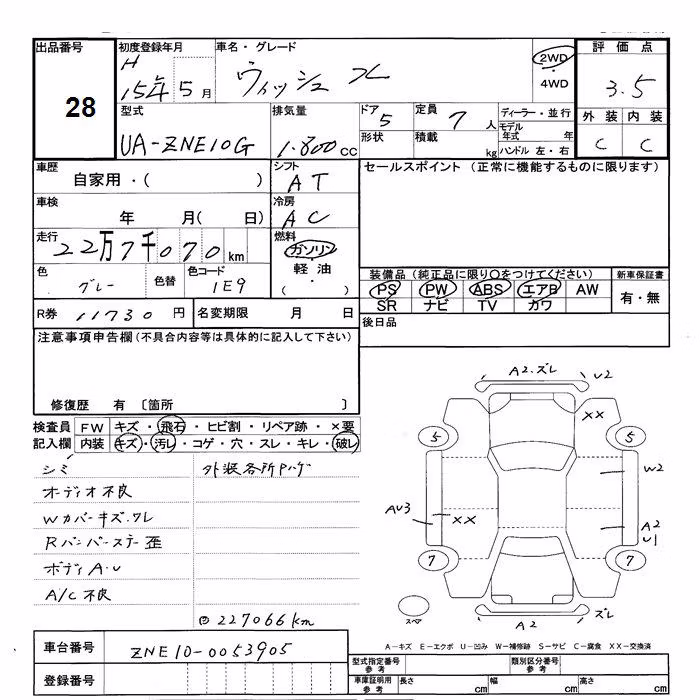 出品番号 28
初度登録年月 H 15年 5月
車名・グレード ウィッシュ X
2WD・4WD
評価点 3.5
外装 C 内装 C
型式 UA-ZNE10G
排気量 1.800cc
ドア 5
形状
定員 7人
積載 kg
ディーラー・並行
モデル年式 年
ハンドル 左・右
車歴 自家用・( )
シフト AT
セールスポイント (正常に機能するものに限ります)
車検 年 月( 日)
冷房 AC
走行 22万7千070km
燃料 ガソリン・軽油・( )
色 グレー 色替 色コード 1E9
装備品 (純正品に限り○をつけてください)
PS PW ABS エアB AW
SR ナビ TV カワ
新車保証書 有・無
R券 11730円
名変期限 月 日
後日品
注意事項申告欄(不具合内容等は具体的に記入して下さい)
修復歴 有 〔箇所 〕
検査員記入欄
FW キズ・飛石・ヒビ割・リペア跡・×要
内装 キズ・汚レ・コゲ・穴・スレ・キレ・破レ
シミ 外装各所Pハゲ
オーディオ不良
Wカバーキズ.ワレ
Rバンパーステー歪
ボディA.U
A/C不良
227066km
A2.ズレ U2
XX
5 5
W2
AU3 XX
A2
U1
7 7
スペア
A2 ズレ
A-キズ E-エクボ U-凹み W-補修跡 S-サビ C-腐食 XX-交換済
車台番号 ZNE10-0053905
登録番号
型式指定番号 参考
類別区分番号 参考
車庫証明用 参考 長さ cm 幅 cm 高さ cm